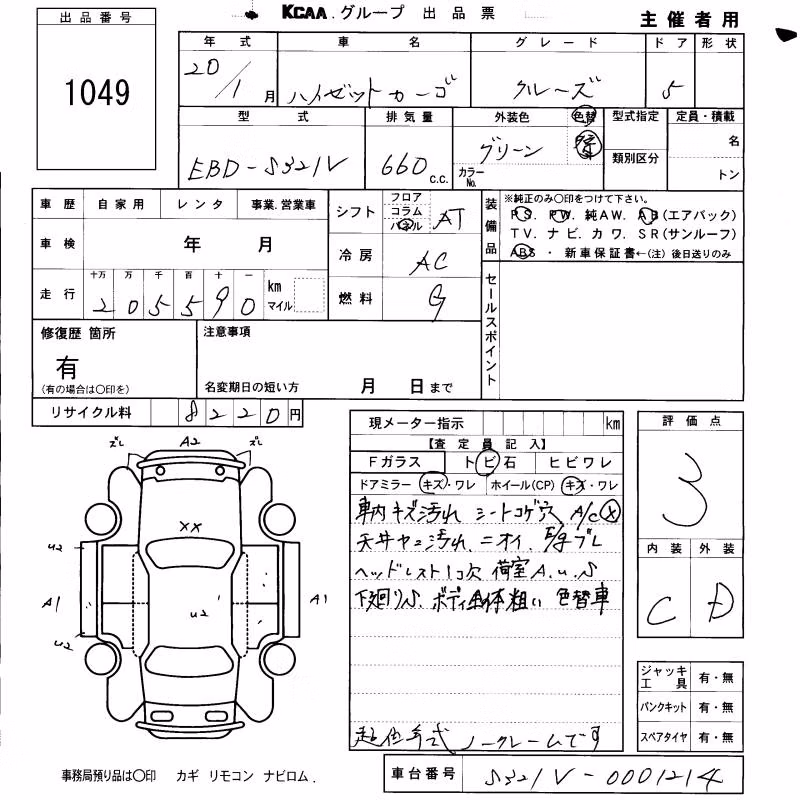 KCAA.グループ 出品票
主催者用
出品番号
1049
年式 車名 グレード ドア 形状
20/1月 ハイゼットカーゴ クルーズ 5
型式 排気量 外装色 色替 型式指定 定員・積載
EBD-S321V 660 c.c. グリーン カラーNo. 類別区分 名
トン
車歴 自家用 レンタ 事業.営業車
車検 年 月
走行 十万 万 千 百 十 一
205590 km マイル
シフト フロア コラム パネル AT
冷房 AC
燃料 G
装備品 ※純正のみ〇印をつけて下さい。
PS. PW. 純AW. AB(エアバック)
TV. ナビ. カワ. SR(サンルーフ)
ABS ・ 新車保証書←(注) 後日送りのみ
セールスポイント
修復歴 箇所
有
(有の場合は〇印を)
注意事項
名変期日の短い方 月 日まで
リサイクル料 8220円
現メーター指示 km
【査定員記入】
Fガラス トビ石 ヒビワレ
ドアミラー キズ・ワレ ホイール(CP) キズ・ワレ
車内キズ汚れ シートコゲ穴 A/C X
天井ヤニ汚れ.ニオイ.
ヘッドレスト1コ欠 荷室A.u.S
下廻りS. ボディ全体粗い 色替車
ノークレームです
評価点
3
内装 外装
C D
ジャッキ工具 有・無
パンクキット 有・無
スペアタイヤ 有・無
ズレ A2 ズレ
XX
U2
A1 U2 A1
U2
事務局預り品は〇印 カギ リモコン ナビロム.
車台番号 S321V-0001214